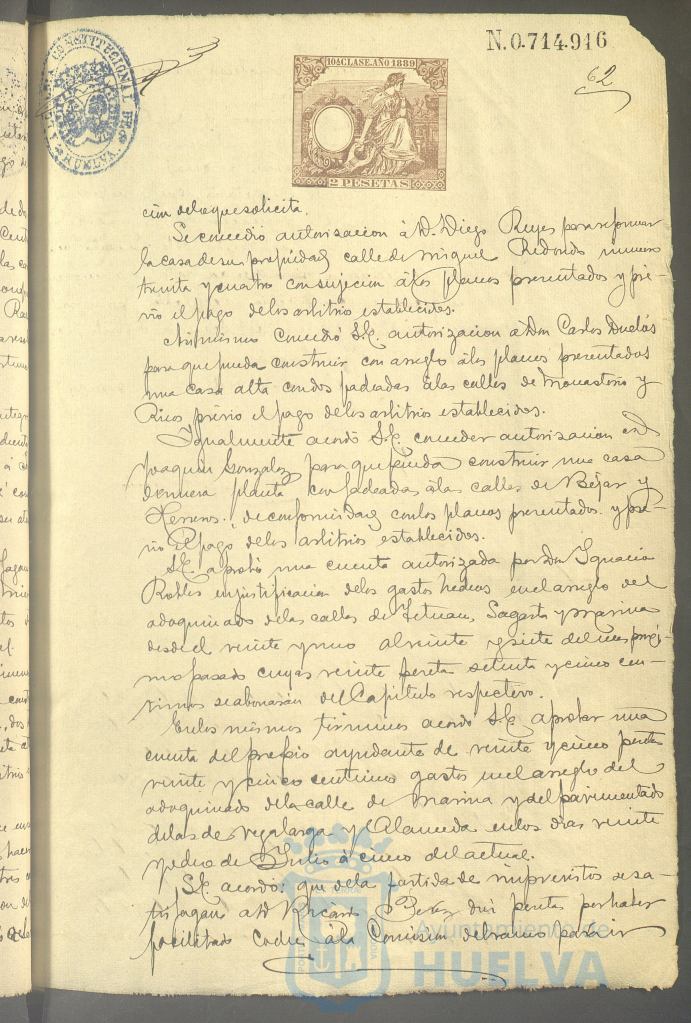 N.0.714.916
10ª CLASE. AÑO 1889
62
2 PESETAS
HUELVA
cion de lo que solicita.
Se concedió autorizacion á D. Diego Reyes para reformar
la casa de su propiedad calle de Miguel Redondo numero
treinta y cuatro con sujecion á los planos presentados y pré-
vio el pago de los arbitrios establecidos.
Asimismo concedió S.E. autorizacion á Don Carlos
para que pueda construir con arreglo á los planos presentados
una casa alta con dos fachadas á las calles de Monasterio y
Ricos prévio el pago de los arbitrios establecidos.
Igualmente acordó S.E. conceder autorizacion á D.
Joaquin Gonzalez para que pueda construir una casa
de nueva planta con fachadas á las calles de Béjar y
Herreros, de conformidad con los planos presentados y pré-
vio el pago de los arbitrios establecidos.
S.E. aprobó una cuenta autorizada por Don Ignacio
Robles en justificacion de los gastos hechos en el arreglo del
adoquinado de las calles de Tetuan, Sagasta y Marina
desde el veinte y uno al veinte y siete del mes próxi-
mo pasado cuyas veinte pesetas setenta y cinco cen-
timos se abonarán del Capítulo respectivo.
En los mismos términos acordó S.E. aprobar una
cuenta del propio ayudante de veinte y cinco pesetas
veinte y cinco centimos gastos en el arreglo del
adoquinado de la calle de Marina y del pavimentado
de las de Vegalarga y Alameda en los dias veinte
y ocho de Julio á cinco del actual.
S.E. acordó: que de la partida de imprevistos se sa-
tisfagan á D. Ricardo Perez diez pesetas por haber
facilitado coches á la Comision del ramo para ir
Ayuntamiento de
HUELVA